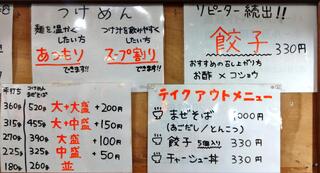 つけめん
麺を温かくしたい方
あつもり
できます!!
つけ汁を飲みやすくしたい方
スープ割り
できます!!
リピーター続出!!
餃子 330円
おすすめのお召し上がり方
お酢×コショウ
つけめん
まぜそば
360g 520g 大+大盛 +200円
315g 455g 大+中盛 +150円
270g 390g 大盛 +100円
225g 325g 中盛 +50円
180g 260g 並
テイクアウトメニュー
まぜそば 1000円
(あごだし/とんこつ)
餃子 5個入り 330円
チャーシュー丼 330円